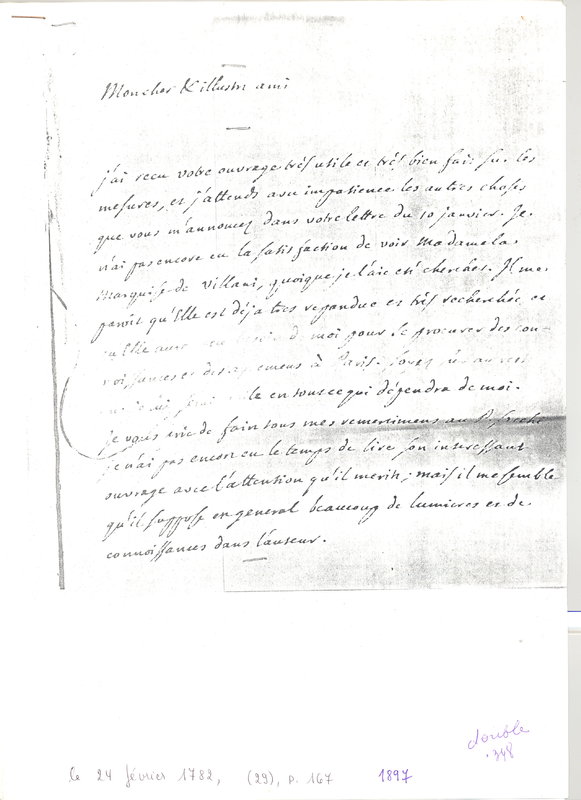 Mon cher & illustre ami
j'ai recu votre ouvrage très utile et très bien fait sur les
mesures, et j'attends avec impatience les autres choses
que vous m'annoncez dans votre lettre du 10 janvier. Je
n'ai pas encore eu la satisfaction de voir Madame la
Marquise de Villani, quoique je l'aie eté cherchée. Il me
paroît qu'Elle est déja très repandue et très recherchée, et
qu'Elle aura moi pour se procurer des con-
noissances et des agremens à Paris. soyez
en tout ce qui dépendra de moi.
Je vous prie de faire tous mes remercimens au P.
je n'ai pas encore eu le temps de lire son interessant
ouvrage avec l'attention qu'il merite; mais il me semble
qu'il suppose en general beaucoup de lumieres et de
connoissances dans l'auteur.
double
348
le 24 février 1782, (29), p. 167 1897